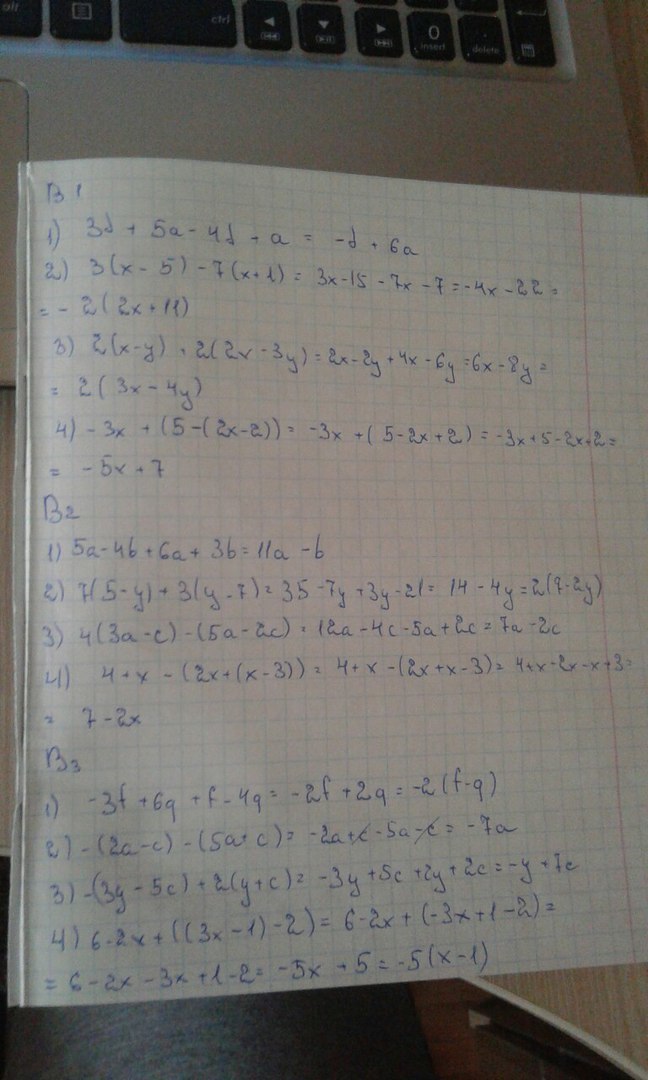 alt
ctrl
0
insert
delete
В 1
1) 3d + 5a - 4d + a = -d + 6a
2) 3(x - 5) - 7(x+1) = 3x-15 - 7x - 7 = -4x - 22 =
= - 2(2x+11)
3) 2(x-y) + 2(2x - 3y) = 2x-2y+4x-6y = 6x-8y =
= 2(3x-4y)
4) - 3x + (5-(2x-2)) = -3x + (5-2x+2) = -3x+5-2x+2 =
= -5x+7
В2
1) 5a-4b+6a+3b = 11a -b
2) 7(5-y) + 3(y-7) = 35-7y+3y-21 = 14-4y = 2(7-2y)
3) 4(3a-c) - (5a-2c) = 12a-4c-5a+2c = 7a-2c
4) 4+x - (2x+(x-3)) = 4+x-(2x+x-3) = 4+x-2x-x+3 =
= 7-2x
В3
1) -3f +6q +f - 4q = -2f +2q = -2(f-q)
2) -(2a-c) - (5a+c) = -2a+c-5a-c = -7a
3) -(3y - 5c) + 2(y+c) = -3y +5c +2y+2c = -y+7c
4) 6-2x + ((3x-1)-2) = 6-2x+(-3x+1-2) =
= 6-2x-3x+1-2 = -5x+5 = -5(x-1)